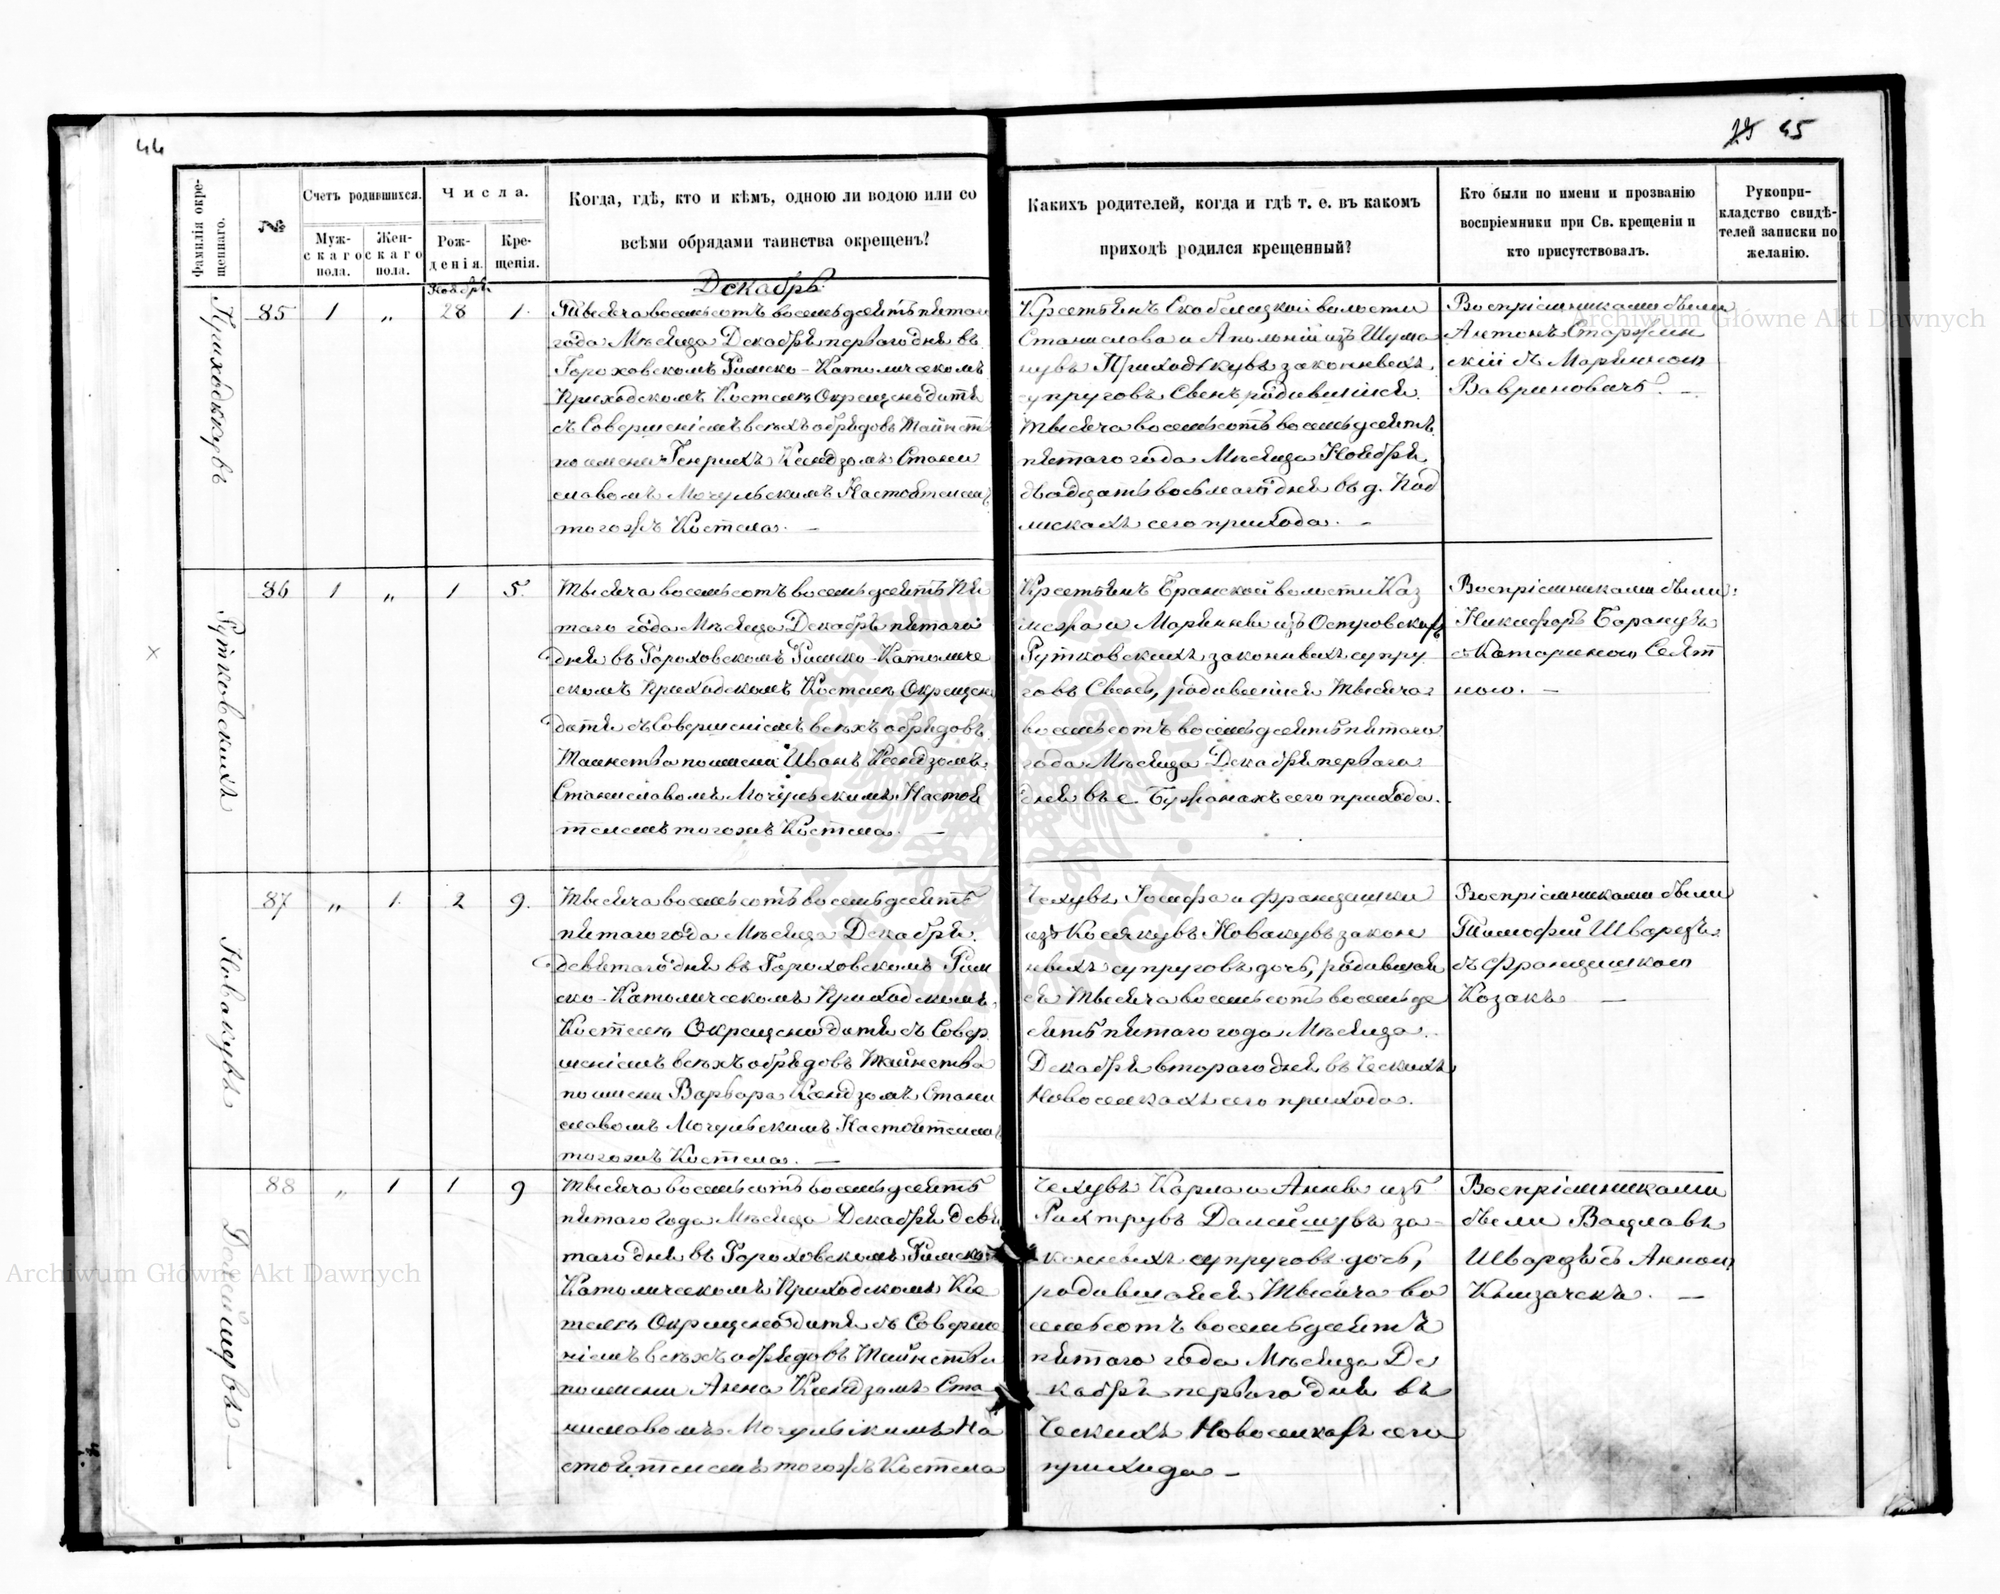 44
25 45
Фамилія окре-
щеннаго.
№
Счетъ родившихся.
Муж-
скаго
пола.
Жен-
скаго
пола.
Числа.
Рож-
денія.
Кре-
щенія.
Когда, гдѣ, кто и кѣмъ, одною ли водою или со
всѣми обрядами таинства окрещенъ?
Какихъ родителей, когда и гдѣ т. е. въ какомъ
приходѣ родился крещенный?
Кто были по имени и прозванію
воспріемники при Св. крещеніи и
кто присутствовалъ.
Рукопри-
кладство свидѣ-
телей записки по
желанію.
Декабрь
Приходькувъ
85 1 „ Ноябрь 28 1.
Тысяча восемьсотъ восемьдесятъ пятого
года Мѣсяца Декабря перваго дня въ
Гороховскомъ Римско-Католическомъ
Приходскомъ Костелѣ Окрещено дитя
съ Совершеніемъ всѣхъ обрядовъ Таинст
по имени Генрихъ Ксендзомъ Стани
славомъ Мочульскимъ Настоятелемъ
тогожъ Костела. —
Крестьянъ Скобелецкой волости
Станислава и Аполоніи изъ Шума
Приходькувъ законныхъ
супруговъ Сынъ родившійся
тысяча восемьсотъ восемьдесятъ
пятаго года Мѣсяца Ноября
двадцать восьмаго дня въ д. Под
лискахъ сего прихода. —
Воспріемниками были
Антонъ
скій съ Маріанною
Вавриновичъ. —
Рутковскихъ
86 1 „ 1 5.
Тысяча восемьсотъ восемьдесятъ пя
таго года Мѣсяца Декабря пятаго
дня въ Гороховскомъ Римско-Католиче
скомъ Приходскомъ Костелѣ Окрещено
дитя съ Совершеніемъ всѣхъ обрядовъ
Таинства по имени Иванъ Ксендзомъ
Станиславомъ Мочульскимъ Настоя
телемъ тогожъ Костела. —
Крестьянъ Бранской волости Каз
имера и Маріанны изъ Островскихъ
Рутковскихъ законныхъ супру
говъ Сынъ, родившійся тысяча
восемьсотъ восемьдесятъ пятаго
года Мѣсяца Декабря перваго
дня въ с. Бужанахъ сего прихода.
Воспріемниками были:
Никифоръ
съ Катариною Свят
ною. —
Новакувъ
87 „ 1. 2 9.
Тысяча восемьсотъ восемьдесятъ
пятаго года Мѣсяца Декабря
девятаго дня въ Гороховскомъ Рим
ско-Католическомъ Приходскомъ
Костелѣ Окрещено дитя съ Совер
шеніемъ всѣхъ обрядовъ Таинства
по имени Варвара Ксендзомъ Стани
славомъ Мочульскимъ Настоятелемъ
тогожъ Костела. —
Чехувъ Іосифа и Францишки
изъ Новакувъ закон
ныхъ супруговъ дочь, родившая
ся Тысяча восемьсотъ восемьде
сятъ пятаго года Мѣсяца
Декабря втораго дня въ Ческихъ
Новоселкахъ сего прихода.
Воспріемниками были
Тимофей Шварцъ
съ Францишкою
Козакъ —
88 „ 1 1 9
Тысяча восемьсотъ восемьдесятъ
пятаго года Мѣсяца Декабря девя
таго дня въ Гороховскомъ Римско-
Католическомъ Приходскомъ Кос
телѣ Окрещено дитя съ Соверше
ніемъ всѣхъ обрядовъ Таинства
по имени Анна Ксендзомъ Ста
ниславомъ Мочульскимъ На
стоятелемъ тогожъ Костела
Чехувъ Карла и Анны изъ
за-
конныхъ супруговъ дочь,
родившаяся Тысяча во
семьсотъ восемьдесятъ
пятаго года Мѣсяца Де
кабря перваго дня въ
Ческихъ Новоселкахъ сего
прихода —
Воспріемниками
были Вацлавъ
Шварцъ съ Анною
—
Archiwum Główne Akt Dawnych
Archiwum Główne Akt Dawnych